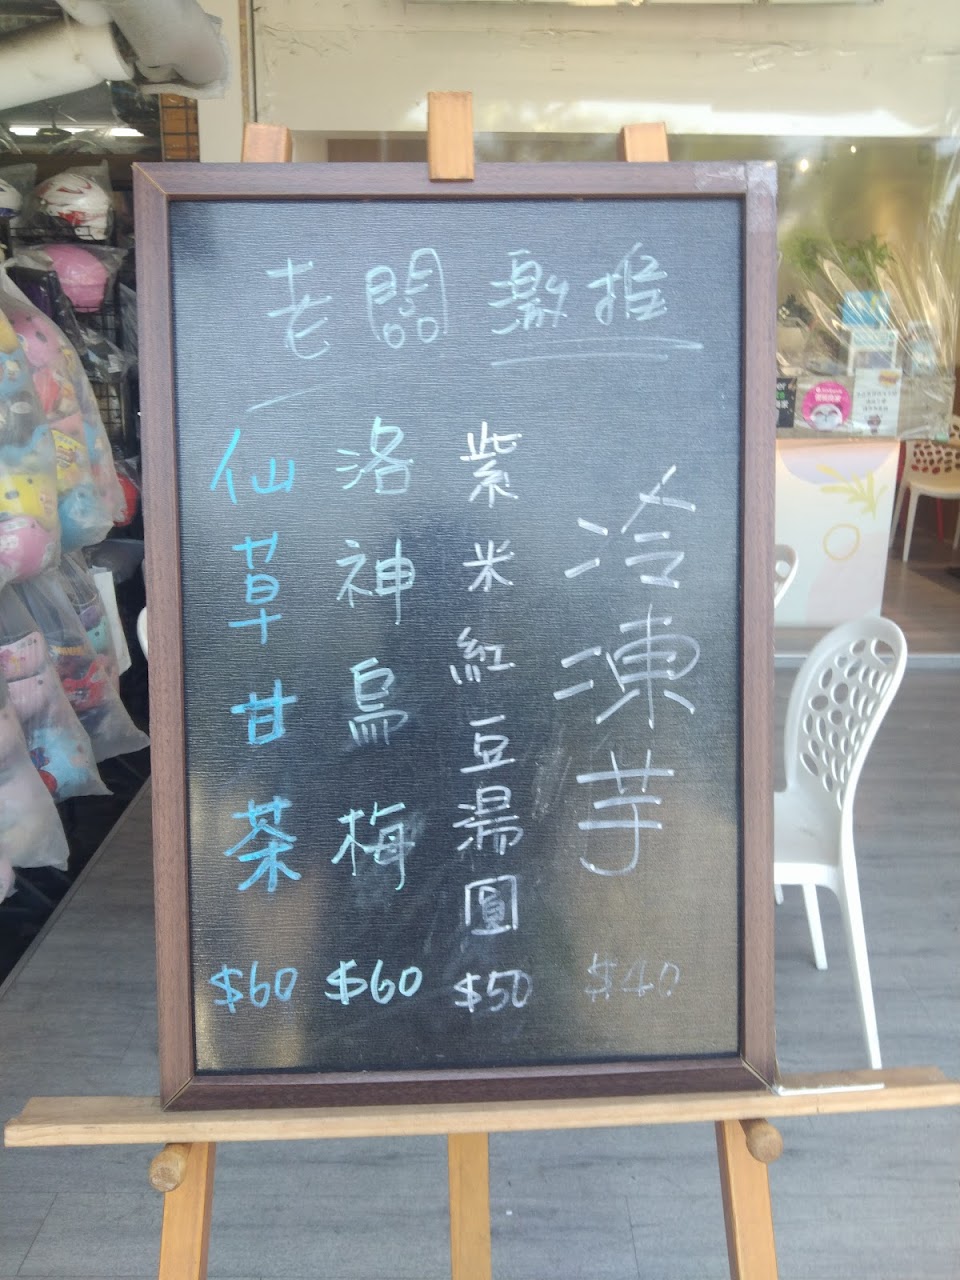 老闆激推
冷凍芋 $40
紫米紅豆湯圓 $50
洛神烏梅 $60
仙草甘茶 $60